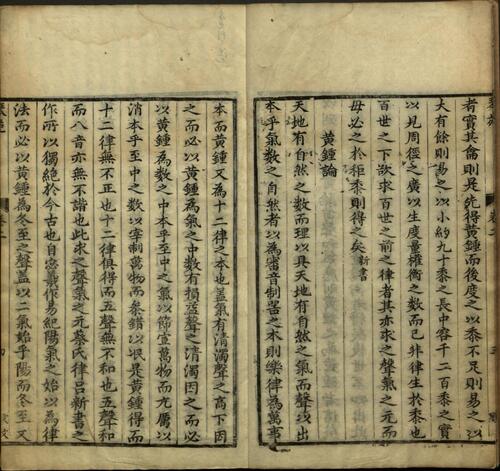 者實其龠則是先得黃鍾而後度之以黍不足則易之以
大有餘則易之以小約九十黍之長中容千二百黍之實
以見周徑之廣以生度量權衡之數而已非律生於黍也
百世之下欲求百世之前之律者其亦求之聲氣之元而
毋必之於秬黍則得之矣 新書
黃鍾論
天地有自然之數而理以具天地有自然之氣而聲以出
本乎氣數之自然者以為審音制器之本則樂律為萬事
本而黃鍾又為十二律之本也蓋氣有清濁聲之高下因
之而必以黃鍾為氣之中數有損益聲之清濁因之而必
以黃鍾為數之中本乎至中之氣以節宣萬物而亢厲以
消本乎至中之數以宰制萬物而紊錯以泯是黃鍾得而
十二律無不正也十二律俱得而五聲無不和也五聲和
而八音亦無不諧也此求之聲氣之元蔡氏律呂新書之
作所以獨絕於今古也自宓羲作易紀陽氣之始以為律
法而必以黃鍾為冬至之聲蓋以二氣始乎陽而冬至又